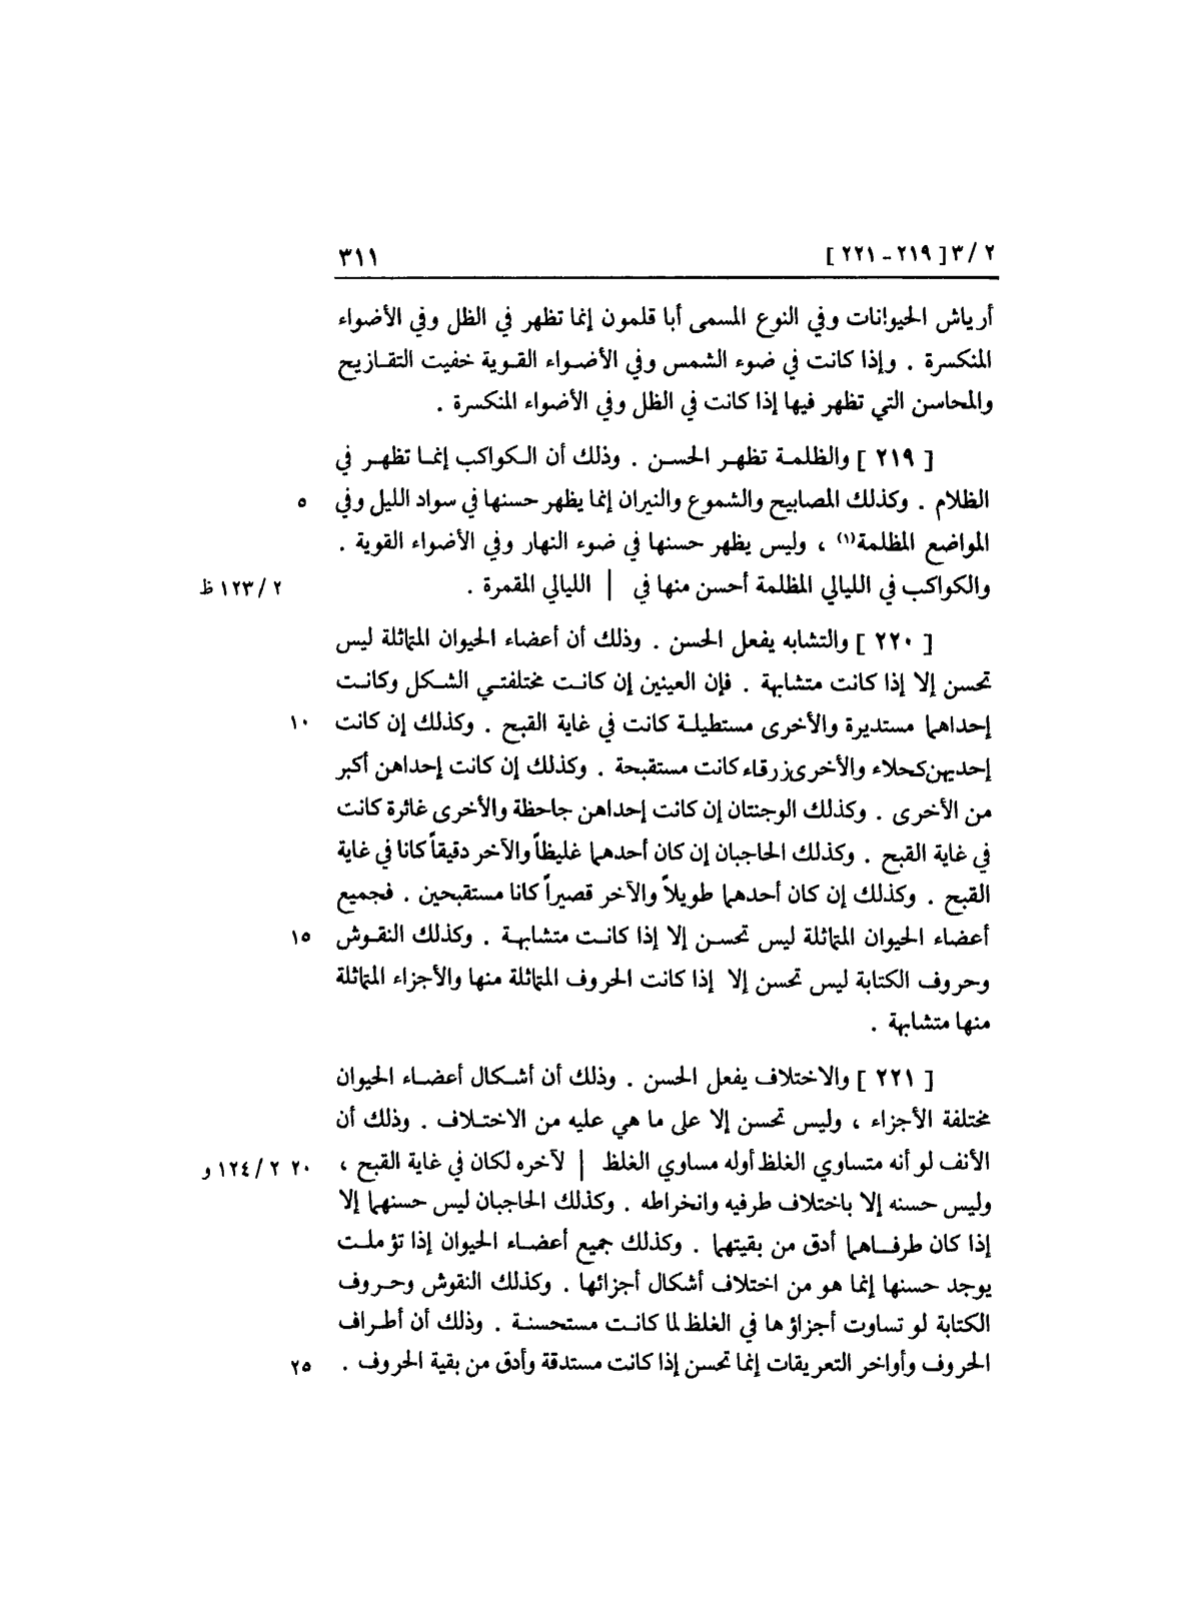 ٢ / ٣ [ ٢١٩ - ٢٢١ ] ٣١١
أرياش الحيوانات وفي النوع المسمى أبا قلمون إنما تظهر في الظل وفي الأضواء
المنكسرة . وإذا كانت في ضوء الشمس وفي الأضواء القوية خفيت التقازيح
والمحاسن التي تظهر فيها إذا كانت في الظل وفي الأضواء المنكسرة .
[ ٢١٩ ] والظلمة تظهر الحسن . وذلك أن الكواكب إنما تظهر في
الظلام . وكذلك المصابيح والشموع والنيران إنما يظهر حسنها في سواد الليل وفي ٥
المواضع المظلمة(١) ، وليس يظهر حسنها في ضوء النهار وفي الأضواء القوية .
والكواكب في الليالي المظلمة أحسن منها في | الليالي المقمرة . ٢ / ١٢٣ ظ
[ ٢٢٠ ] والتشابه يفعل الحسن . وذلك أن أعضاء الحيوان المتماثلة ليس
تحسن إلا إذا كانت متشابهة . فإن العينين إن كانت مختلفتي الشكل وكانت
إحداهما مستديرة والأخرى مستطيلة كانت في غاية القبح . وكذلك إن كانت ١٠
إحديهن كحلاء والأخرى زرقاء كانت مستقبحة . وكذلك إن كانت إحداهن أكبر
من الأخرى . وكذلك الوجنتان إن كانت إحداهن جاحظة والأخرى غائرة كانت
في غاية القبح . وكذلك الحاجبان إن كان أحدهما غليظاً والآخر دقيقاً كانا في غاية
القبح . وكذلك إن كان أحدهما طويلاً والآخر قصيراً كانا مستقبحين . فجميع
أعضاء الحيوان المتماثلة ليس تحسن إلا إذا كانت متشابهة . وكذلك النقوش ١٥
وحروف الكتابة ليس تحسن إلا إذا كانت الحروف المتماثلة منها والأجزاء المتماثلة
منها متشابهة .
[ ٢٢١ ] والاختلاف يفعل الحسن . وذلك أن أشكال أعضاء الحيوان
مختلفة الأجزاء ، وليس تحسن إلا على ما هي عليه من الاختلاف . وذلك أن
الأنف لو أنه متساوي الغلظ أوله مساوي الغلظ | لآخره لكان في غاية القبح ، ٢٠ ٢ / ١٢٤ و
وليس حسنه إلا باختلاف طرفيه وانخراطه . وكذلك الحاجبان ليس حسنهما إلا
إذا كان طرفاهما أدق من بقيتهما . وكذلك جميع أعضاء الحيوان إذا تؤملت
يوجد حسنها إنما هو من اختلاف أشكال أجزائها . وكذلك النقوش وحروف
الكتابة لو تساوت أجزاؤها في الغلظ لما كانت مستحسنة . وذلك أن أطراف
الحروف وأواخر التعريقات إنما تحسن إذا كانت مستدقة وأدق من بقية الحروف . ٢٥